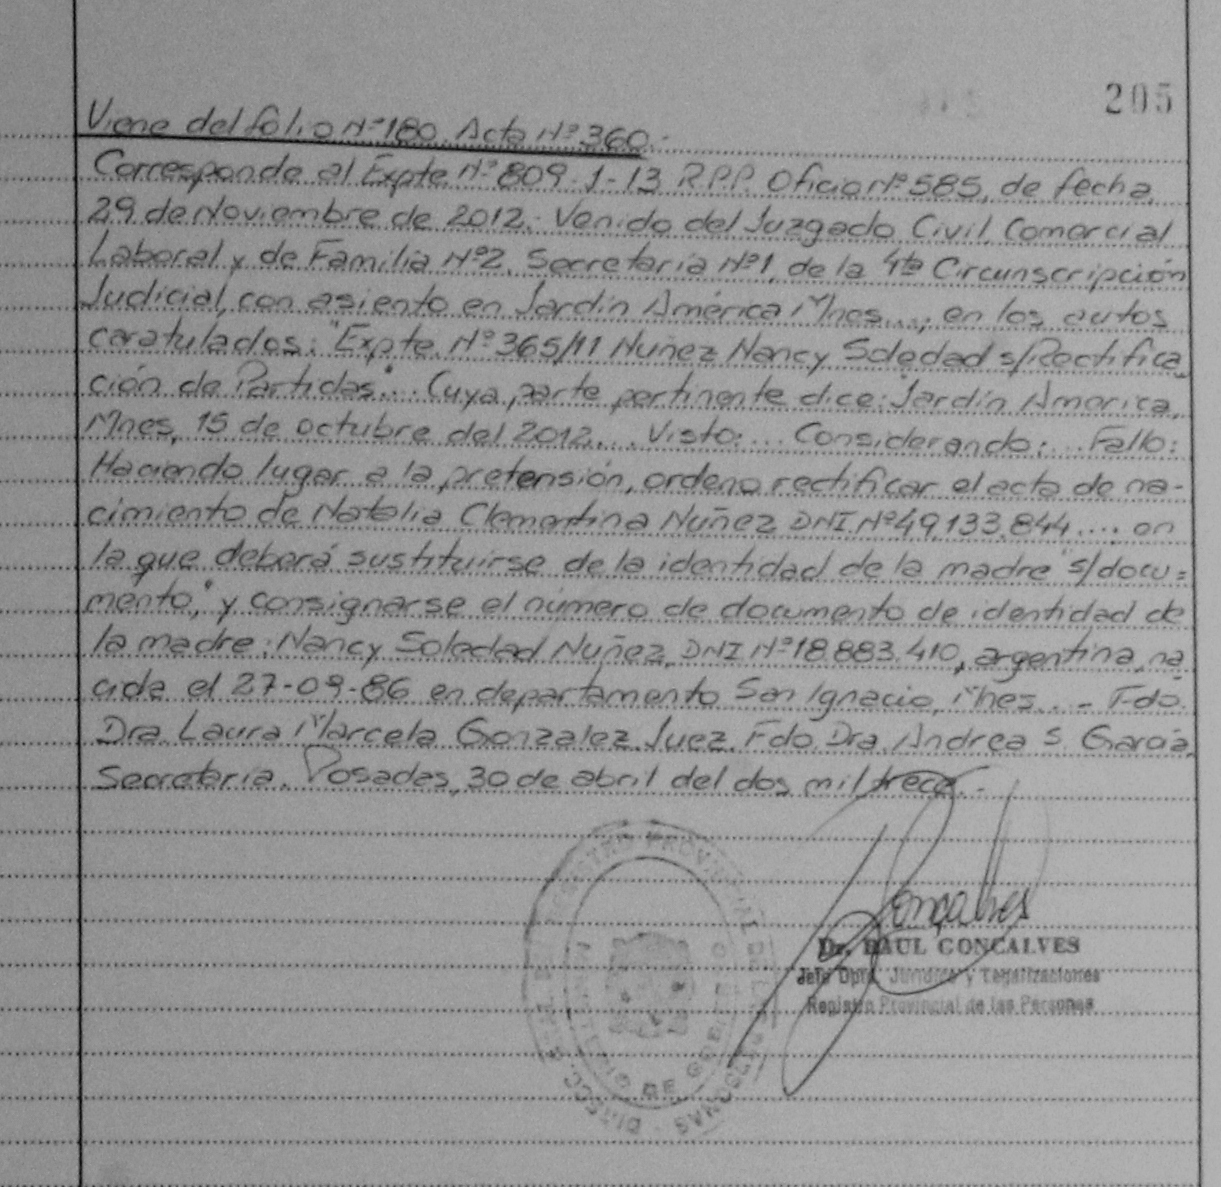 205
Viene del folio Nº 180. Acta Nº 360.-
Corresponde al Expte Nº 809-1-13 R.P.P. Oficio Nº 585, de fecha
29 de Noviembre de 2012.- Venido del Juzgado Civil, Comercial
Laboral y de Familia Nº2, Secretaría Nº1, de la 4ta Circunscripción
Judicial, con asiento en Jardín América Mnes..., en los autos
caratulados: "Expte. Nº 365/11 Nuñez Nancy Soledad s/Rectifica_
ción de Partidas"... Cuya parte pertinente dice: "Jardín America,
Mnes, 15 de octubre del 2012.... Visto:... Considerando:... Fallo:
Haciendo lugar a la pretensión, ordeno rectificar el acta de na-
cimiento de Natalia Clementina Nuñez DNI Nº 49.133.844...., en
la que deberá sustituirse de la identidad de la madre "s/docu=
mento," y consignarse el número de documento de identidad de
la madre: Nancy Soledad Nuñez, DNI Nº 18.883.410, argentina, na
cida el 27-09-86 en departamento San Ignacio, Mnes...- Fdo.
Dra. Laura Marcela Gonzalez. Juez. Fdo. Dra. Andrea S. García,
Secretaria. Posadas, 30 de abril del dos mil trece.-
REGISTRO PROVINCIAL DE LAS PERSONAS
MINISTERIO DE GOBIERNO
Goncalves
Dr. RAUL GONCALVES
Jefe Dpto. Jurídico y Legalizaciones
Registro Provincial de las Personas